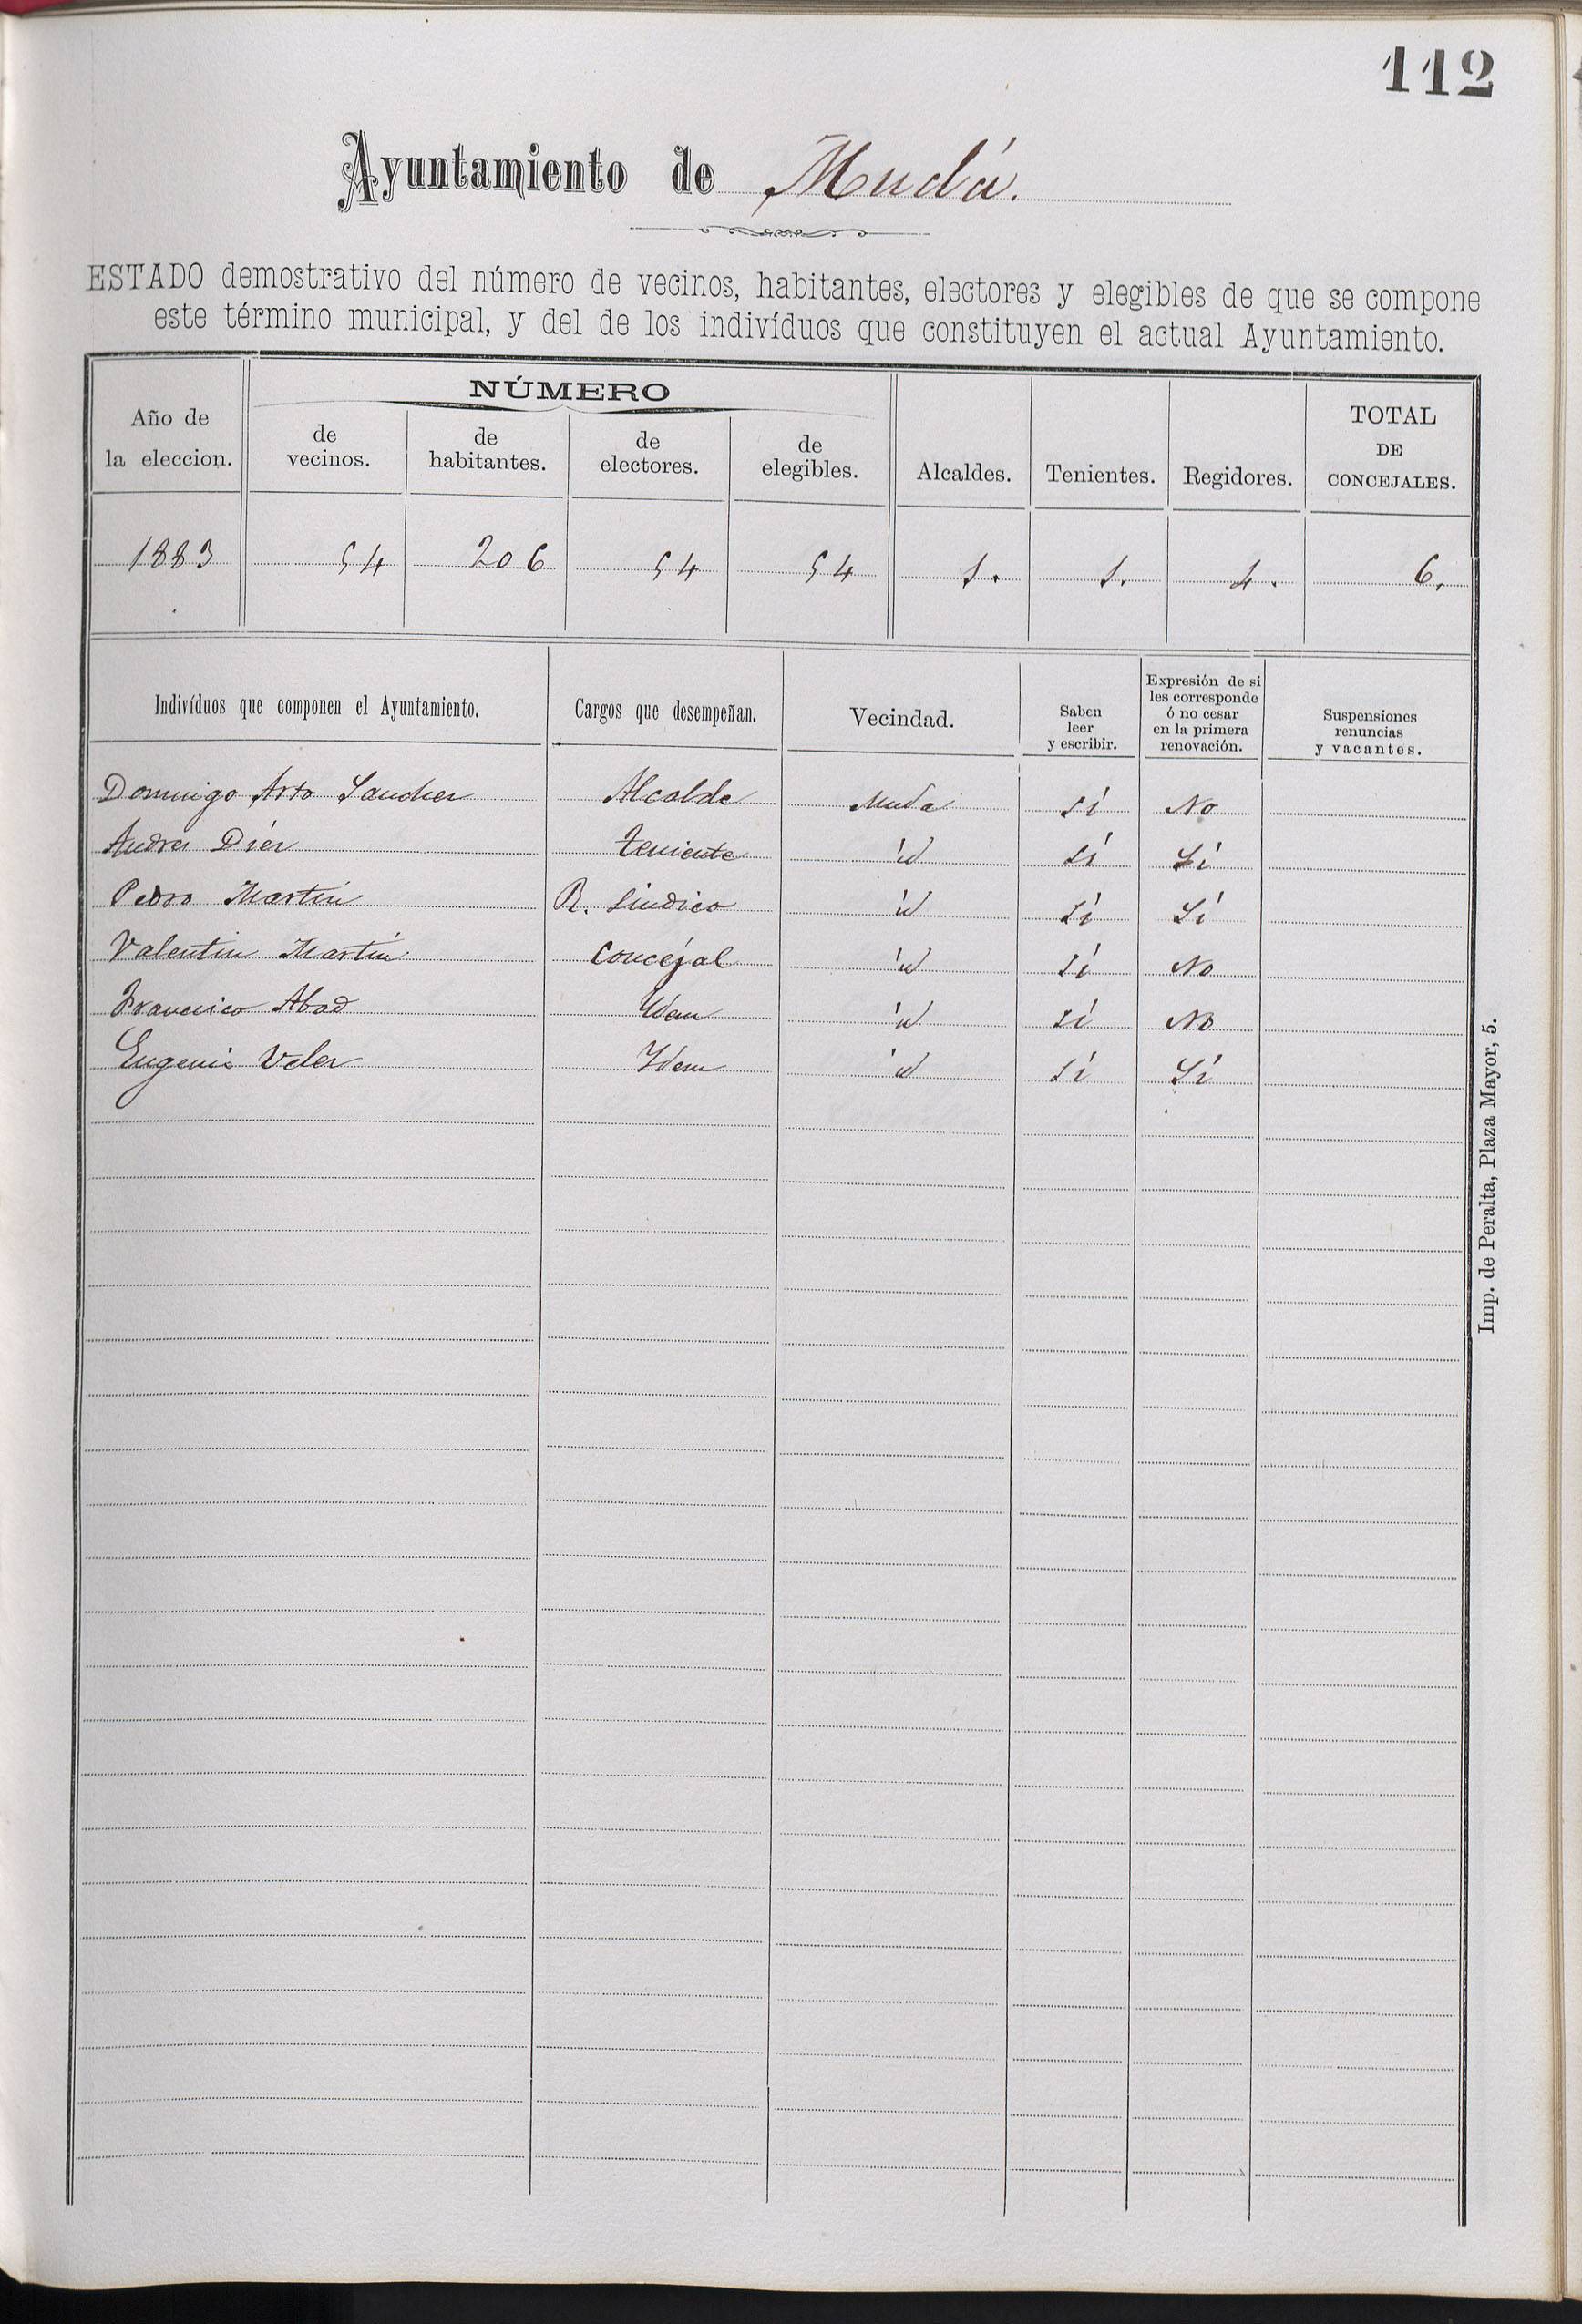 112
Ayuntamiento de Mudá.
ESTADO demostrativo del número de vecinos, habitantes, electores y elegibles de que se compone
este término municipal, y del de los indivíduos que constituyen el actual Ayuntamiento.
Año de la eleccion. NÚMERO de vecinos. de habitantes. de electores. de elegibles. Alcaldes. Tenientes. Regidores. TOTAL DE CONCEJALES.
1883 54 206 54 54 1. 1. 4. 6.
Indivíduos que componen el Ayuntamiento. Cargos que desempeñan. Vecindad. Saben leer y escribir. Expresión de si les corresponde ó no cesar en la primera renovación. Suspensiones renuncias y vacantes.
Domingo Arto Sanchez Alcalde Muda Sí No
Andres Diez teniente id Sí Sí
Pedro Martin R. Sindico id Sí Sí
Valentin Martin Concejal id Sí No
Francisco Abad Idem id Sí No
Eugenio Velez Idem id Sí Sí
Imp. de Peralta, Plaza Mayor, 5.